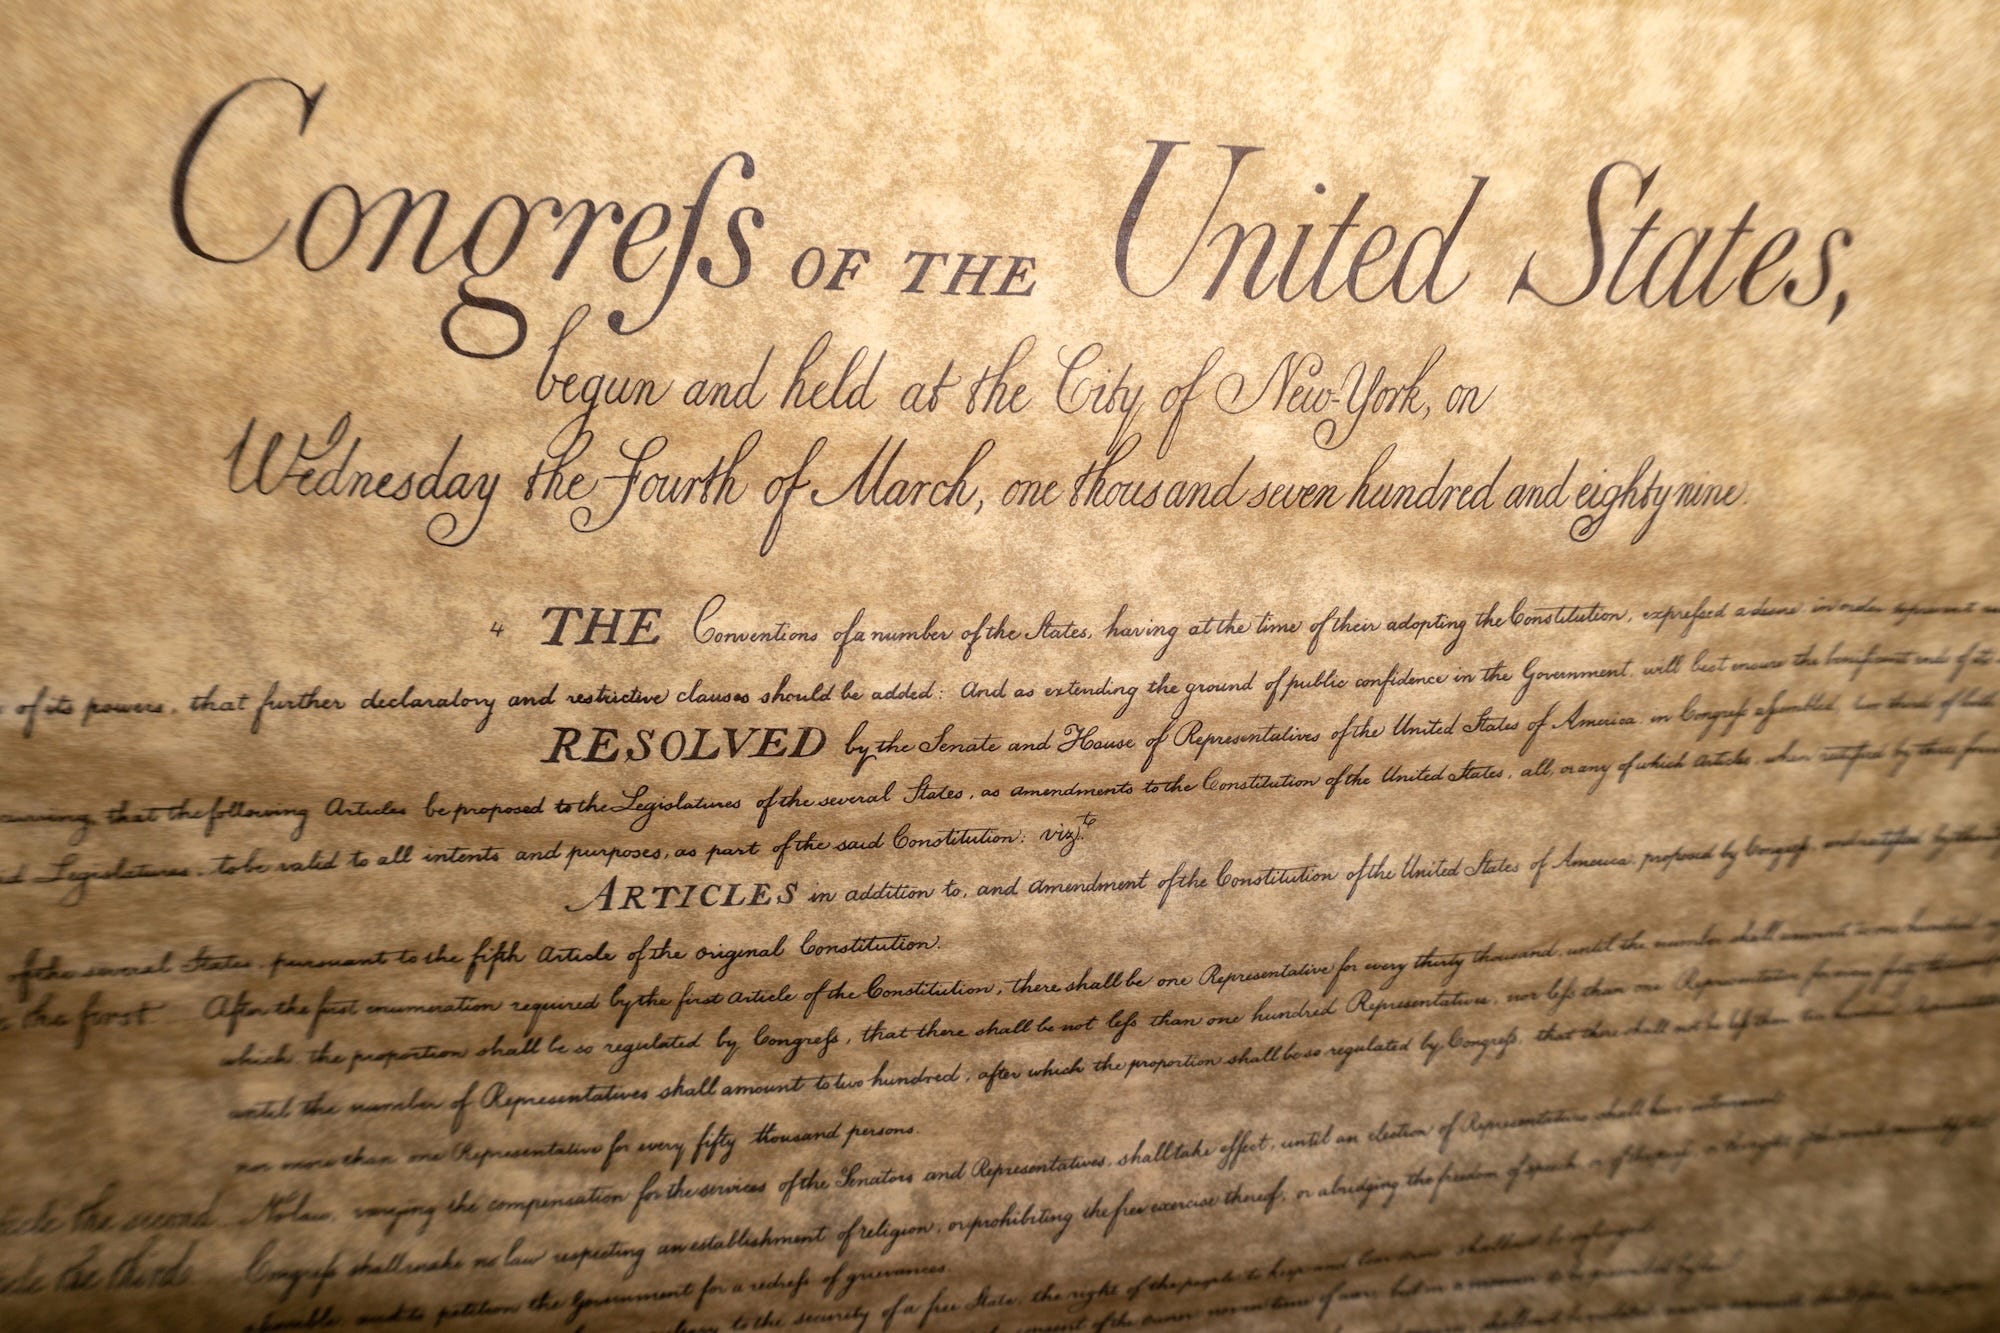 Congreſs OF THE United States,
begun and held at the City of New-York, on
Wednesday the Fourth of March, one thousand seven hundred and eighty nine.
4 THE Conventions of a number of the States, having at the time of their adopting the Constitution, expreſsed a desire in order
of its powers, that further declaratory and restrictive clauses should be added: And as extending the ground of public confidence in the Government, will best ensure the beneficent ends of its
RESOLVED by the Senate and House of Representatives of the United States of America, in Congreſs aſsembled, two thirds of both
that the following Articles be proposed to the Legislatures of the several States, as amendments to the Constitution of the United States, all, or any of which Articles, when ratified by three
Legislatures, to be valid to all intents and purposes, as part of the said Constitution; vizt.
ARTICLES in addition to, and amendment of the Constitution of the United States of America, proposed by Congreſs, and ratified by the
of the several States, pursuant to the fifth Article of the original Constitution.
the first After the first enumeration required by the first Article of the Constitution, there shall be one Representative for every thirty thousand, until the number shall amount to one hundred,
which, the proportion shall be so regulated by Congreſs, that there shall be not leſs than one hundred Representatives, nor leſs than one Representative for every forty thousand
until the number of Representatives shall amount to two hundred, after which the proportion shall be so regulated by Congreſs, that there shall not be leſs than two hundred Representatives
nor more than one Representative for every fifty thousand persons.
the second No law, varying the compensation for the services of the Senators and Representatives, shall take effect, until an election of Representatives shall have intervened.
the third Congreſs shall make no law respecting an establishment of religion, or prohibiting the free exercise thereof; or abridging the freedom of speech, or of the
and to petition the Government for a redreſs of grievances.
to the security of a free State, the right of the people to keep and bear arms shall not be infringed.
consent of the owner nor in time of war, but in a manner to be prescribed by law.